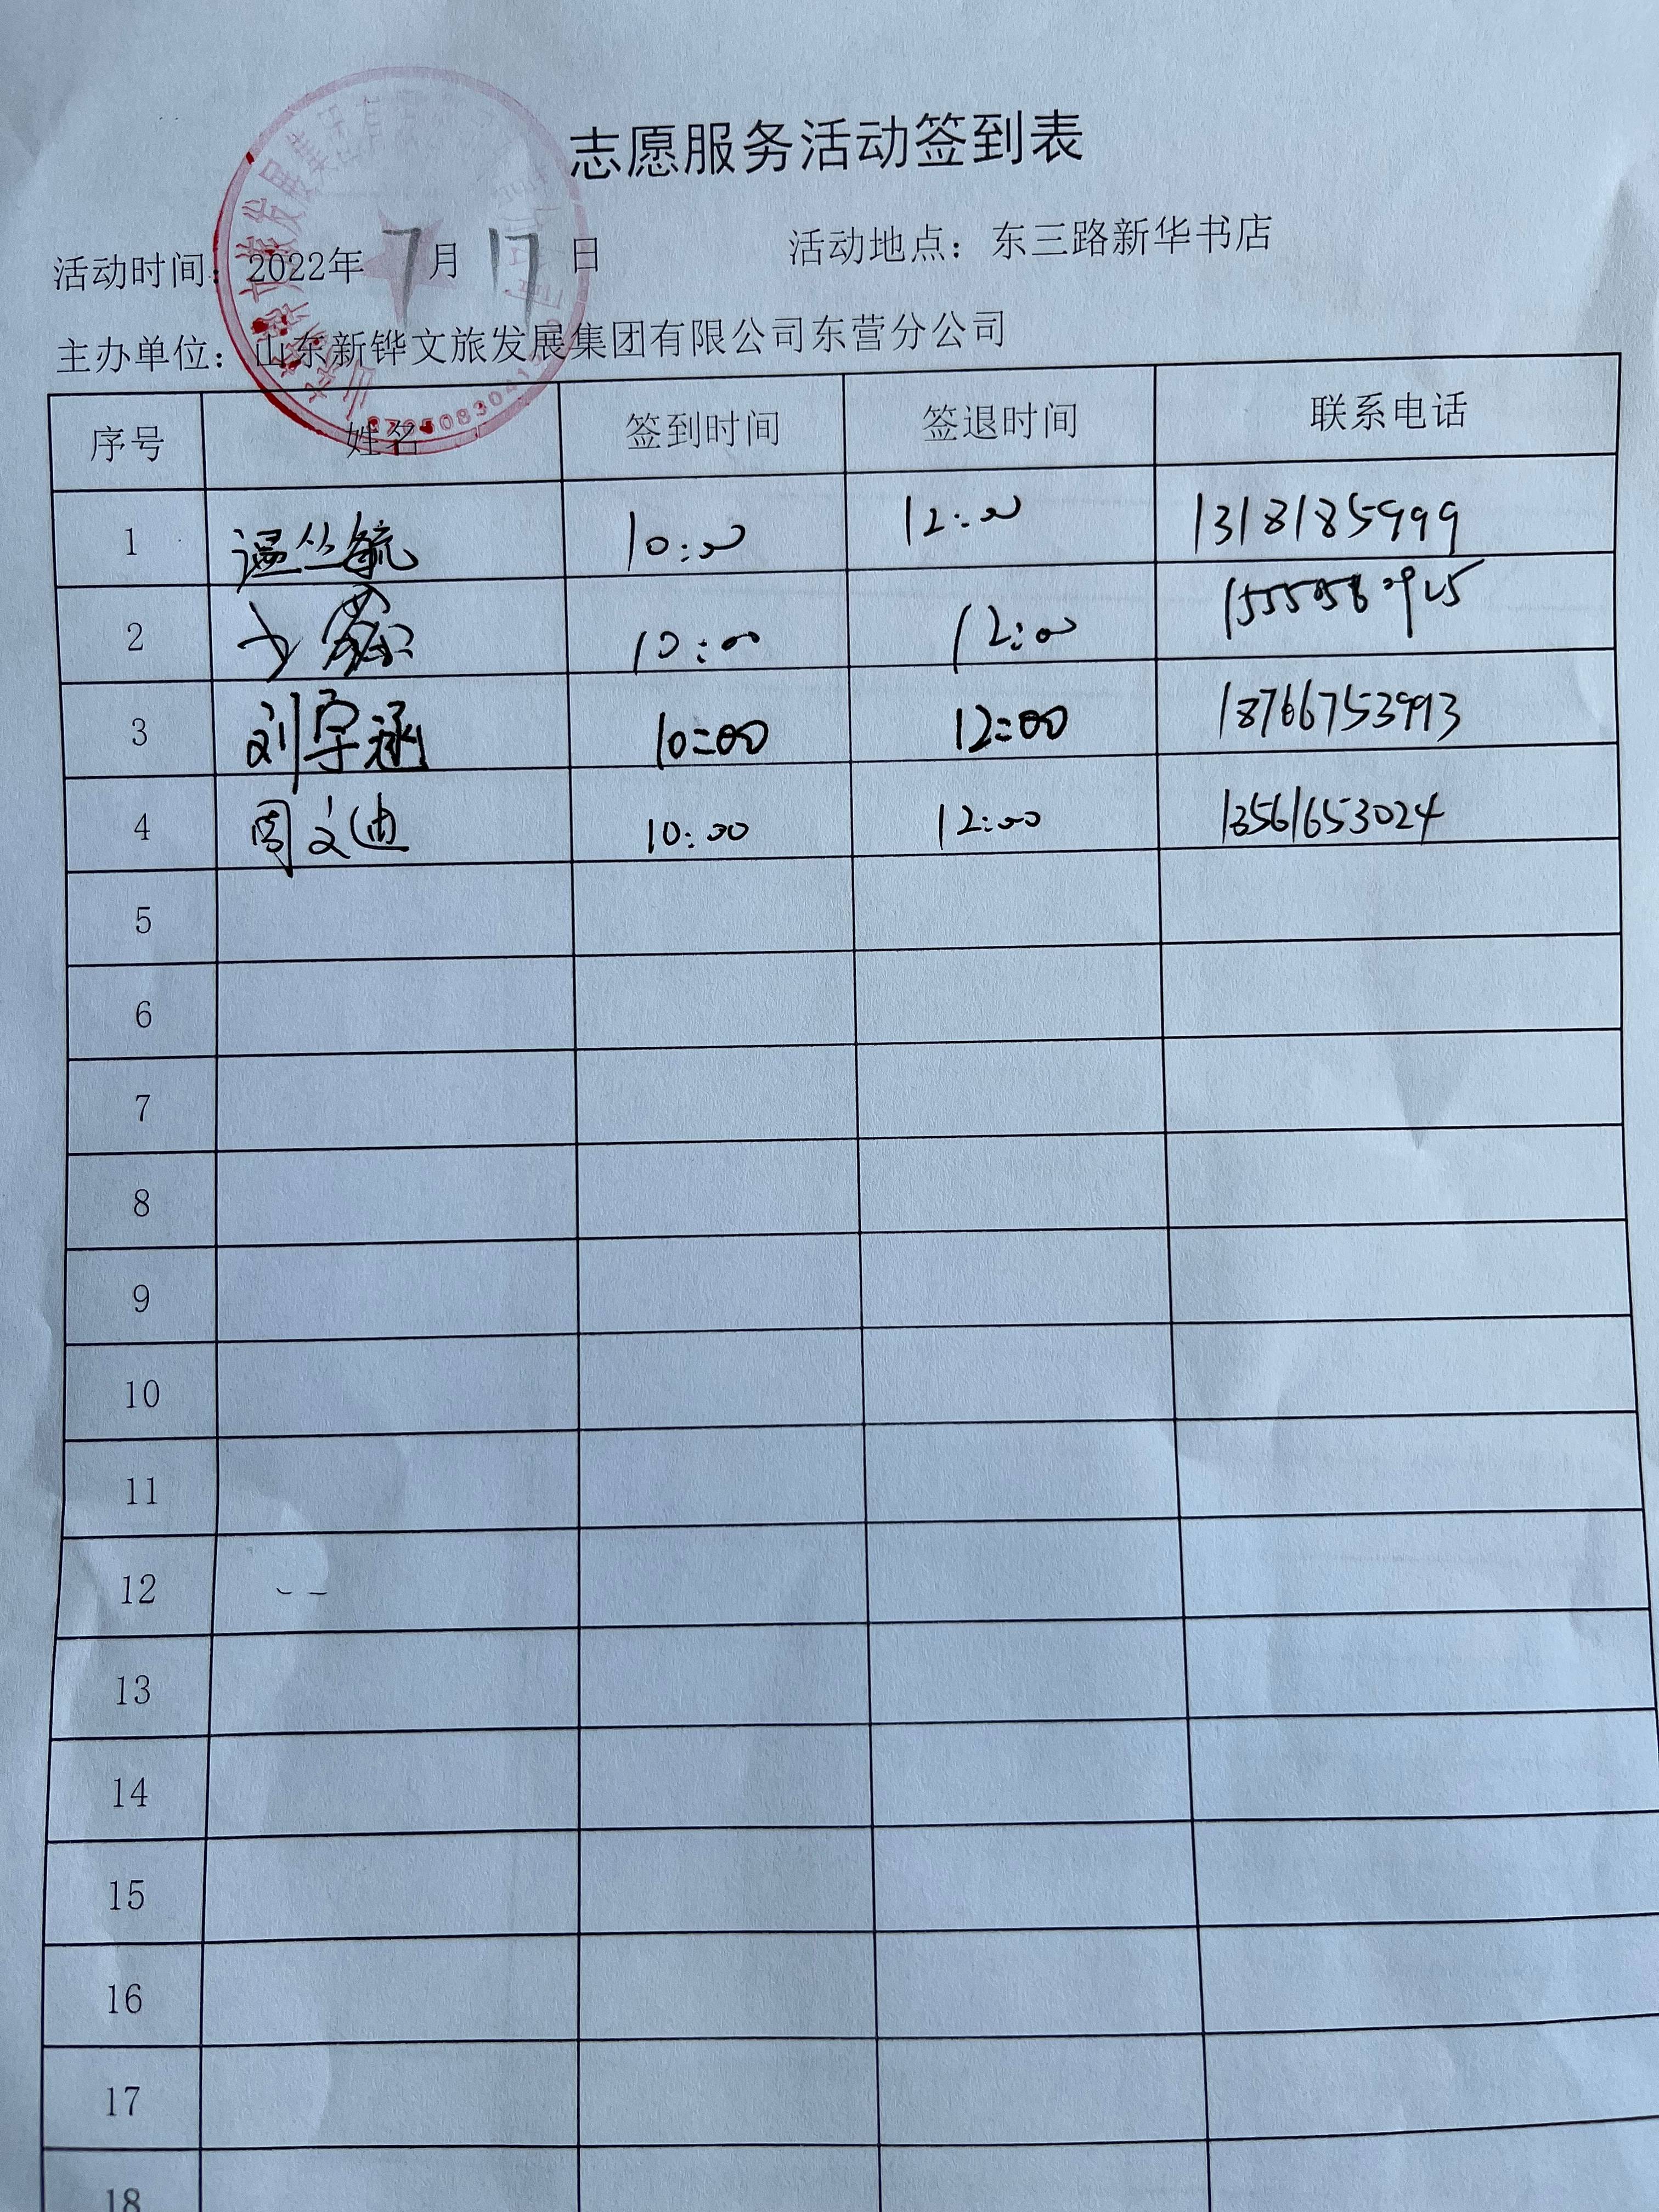 志愿服务活动签到表
活动时间：2022年 7月 17日 活动地点：东三路新华书店
主办单位：山东新铧文旅发展集团有限公司东营分公司
序号 姓名 签到时间 签退时间 联系电话
1 10:00 12:00 13181859999
2 10:00 12:00
3 刘宇涵 10:00 12:00 18766753993
4 周文迪 10:00 12:00 13561653024
5
6
7
8
9
10
11
12
13
14
15
16
17
18